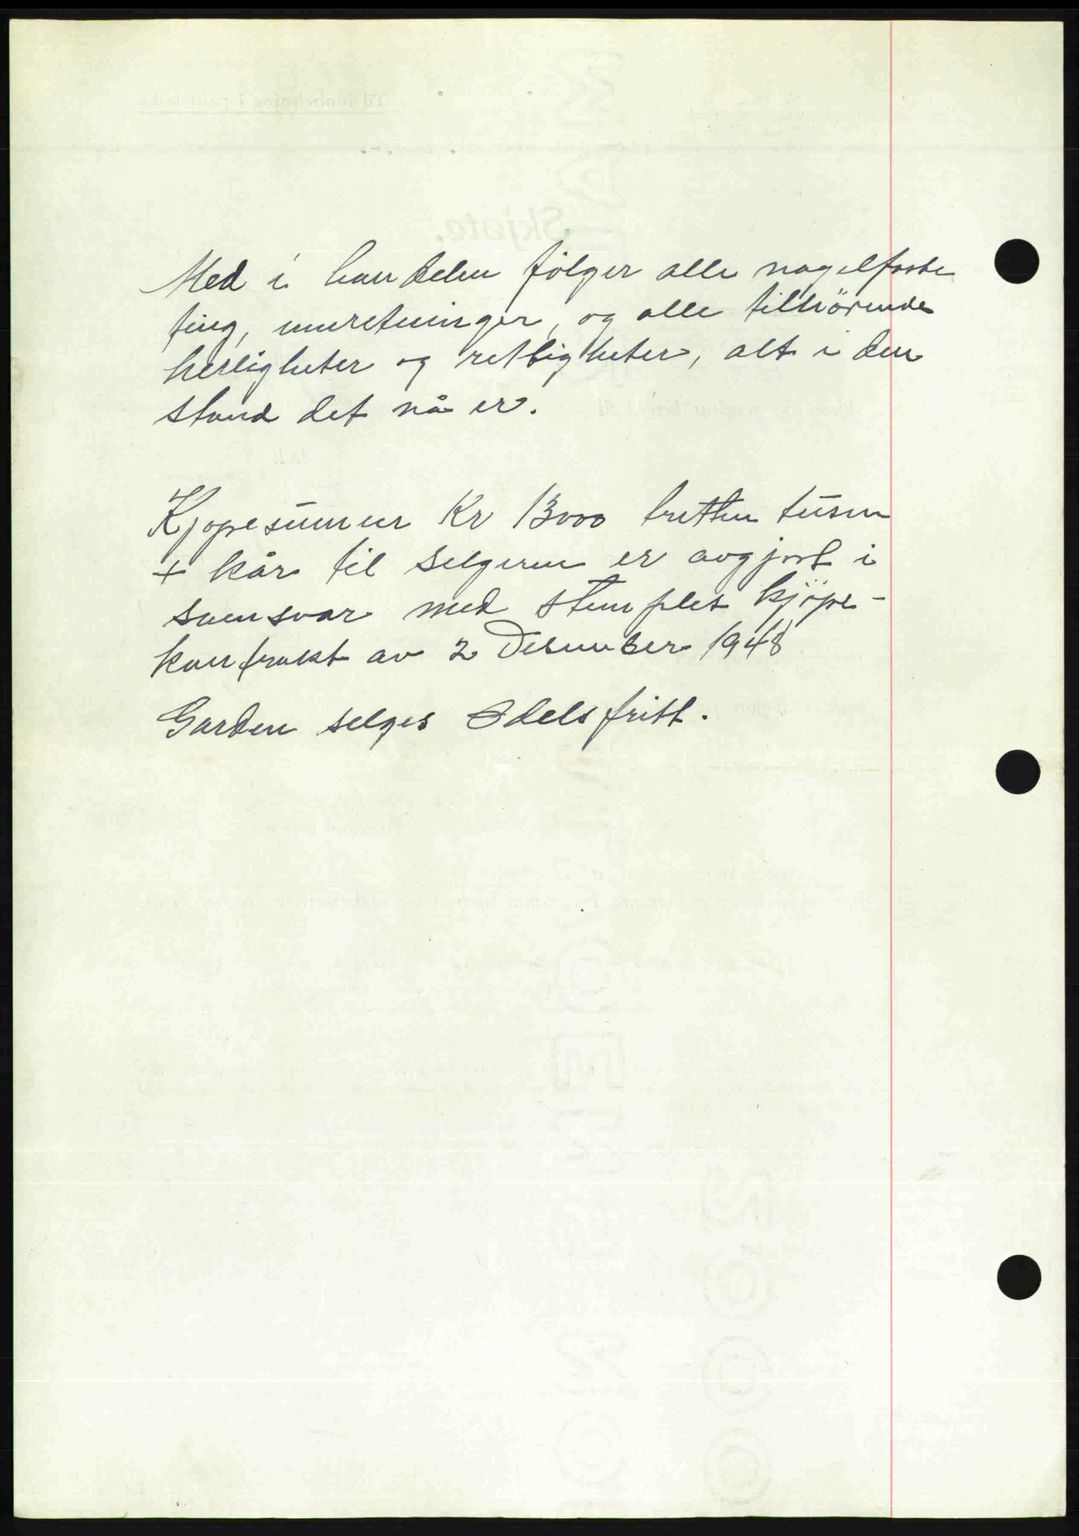 Med i handelen følger alle nagelfaste
ting, innretninger, og alle tilhörende
herligheter og rettigheter, alt i den
stand det nå er.
Kjøpesummen Kr 13000 tretten tusen
+ kår til selgeren er avgjort i
samsvar med stemplet kjöpe-
kontrakt av 2 Desember 1948
Garden selges Odelsfritt.